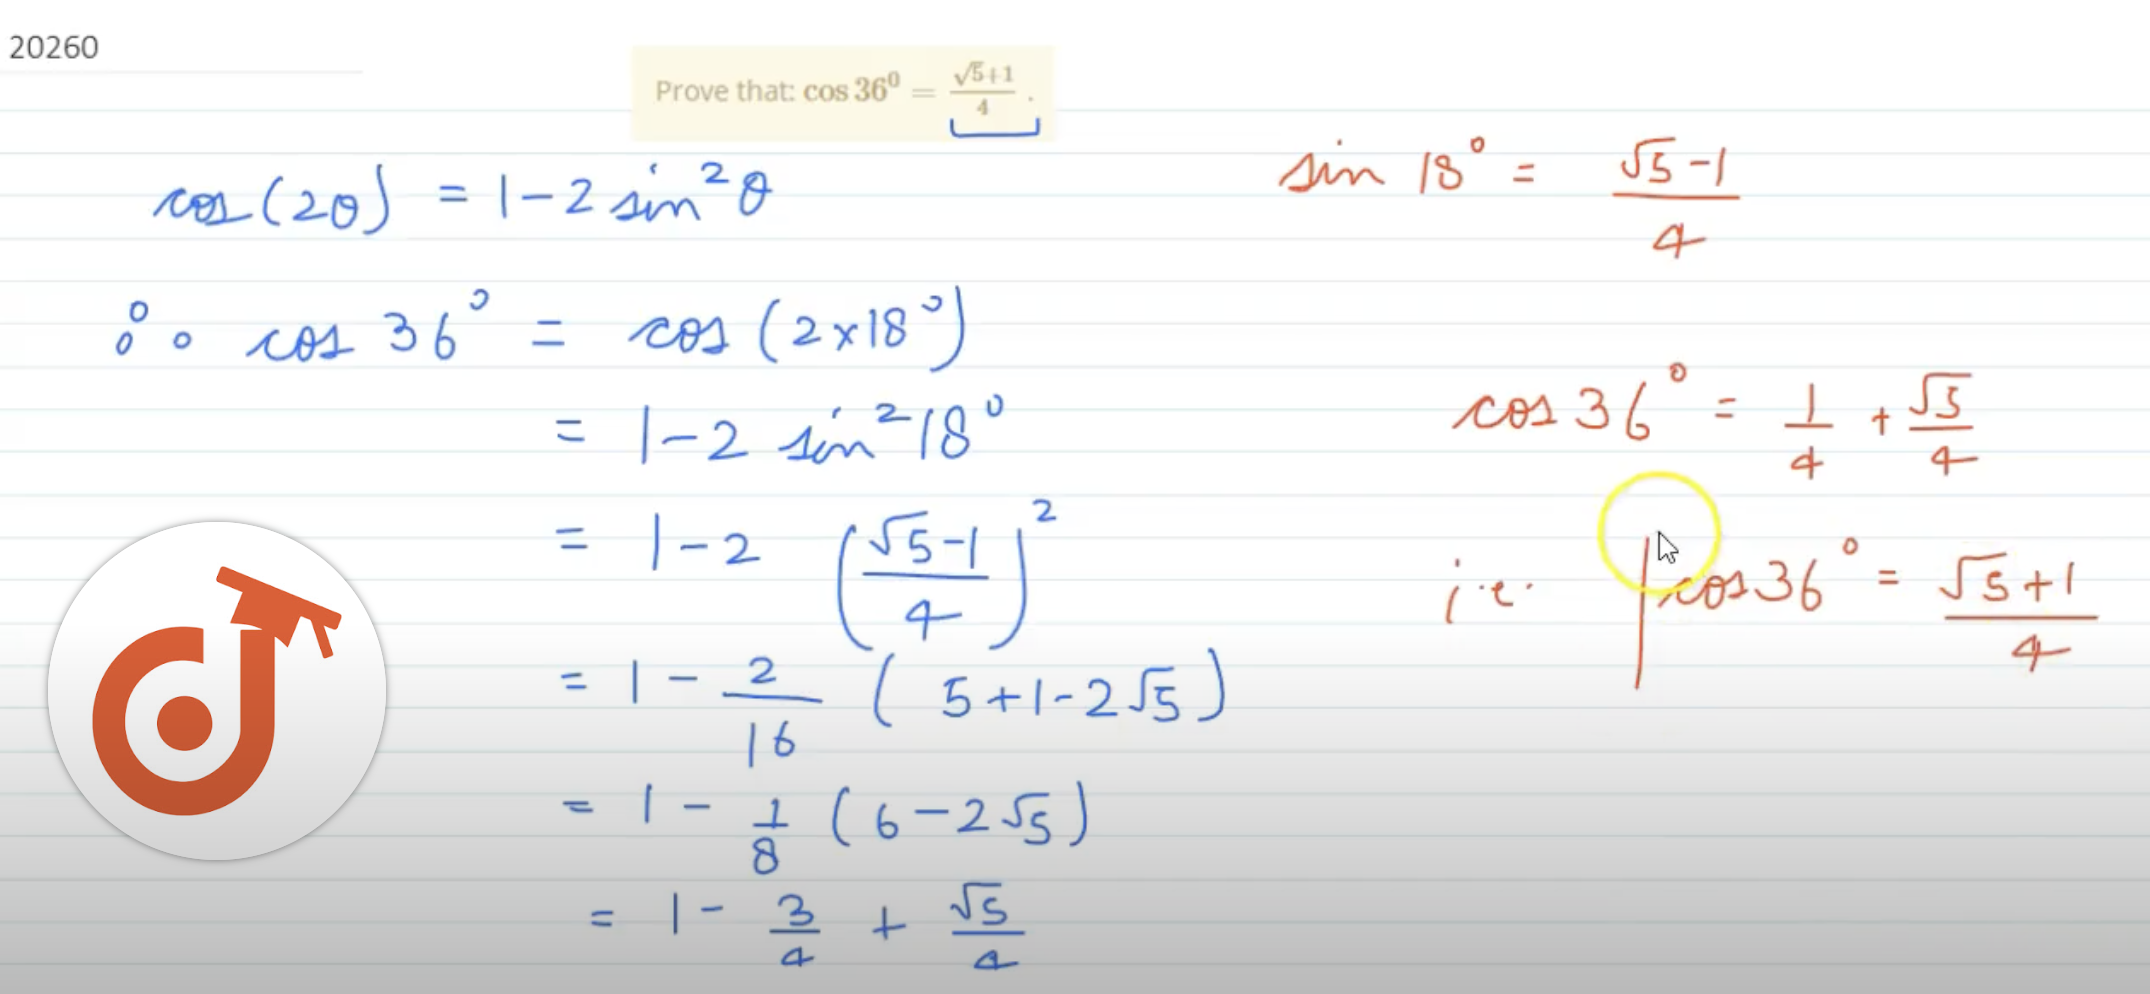 20260
Prove that: cos 36⁰ = (√5+1)/4 .
cos(2θ) = 1 - 2 sin²θ
∴ cos 36° = cos (2×18°)
= 1 - 2 sin²18°
= 1 - 2 ((√5-1)/4)²
= 1 - 2/16 (5+1-2√5)
= 1 - 1/8 (6-2√5)
= 1 - 3/4 + √5/4
sin 18° = (√5-1)/4
cos 36° = 1/4 + √5/4
i.e. cos 36° = (√5+1)/4